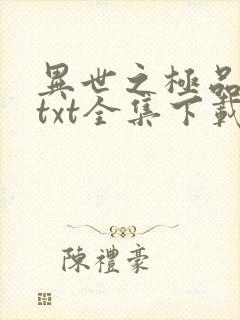 異世之極品
txt全集下載
陳禮豪